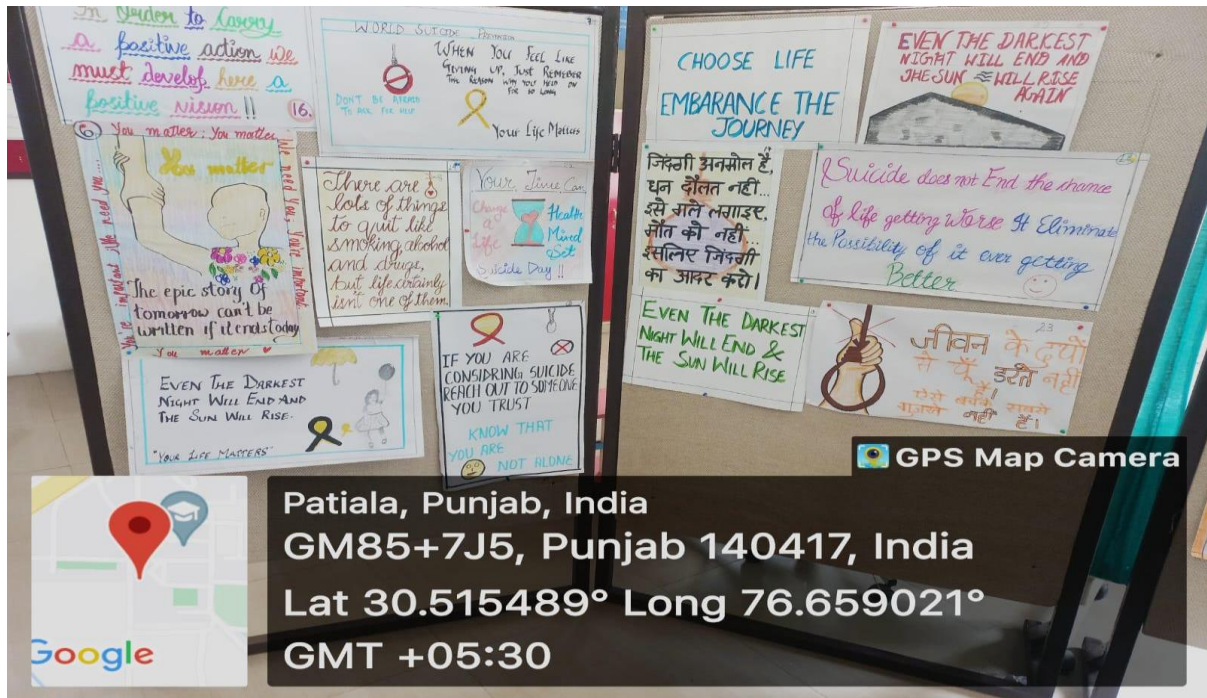 In Order to Carry
a positive action we
must develop here a
positive vision !!
16.
WORLD SUICIDE
WHEN YOU FEEL LIKE
GIVING UP, JUST REMEMBER
THE REASON WHY YOU HELD ON
FOR SO LONG
DON'T BE AFRAID
TO ASK FOR HELP
Your Life Matters
6
You matter; You matter
You matter
We need you, You're important
You're important We need you
The epic story of
tomorrow can't be
written if it ends today
You matter
There are
lots of things
to quit like
smoking alcohol
and drugs,
but life
isn't one of them
Your Time Can
Change
a
Life
Health
Mind
Set
Suicide Day !!
EVEN THE DARKEST
NIGHT WILL END AND
THE SUN WILL RISE.
"YOUR LIFE MATTERS"
IF YOU ARE
CONSIDRING SUICIDE
REACH OUT TO SOMEONE
YOU TRUST
KNOW THAT
YOU ARE
NOT ALONE
CHOOSE LIFE
EMBARANCE THE
JOURNEY
EVEN THE DARKEST
NIGHT WILL END AND
THE SUN WILL RISE
AGAIN
जिंदगी अनमोल है,
धन दौलत नहीं...
इसे गले लगाइए,
मौत को नहीं..
इसलिए जिंदगी
का आदर करो।
Suicide does not End the chance
of life getting Worse It Eliminate
the Possibility of it ever getting
Better
EVEN THE DARKEST
NIGHT WILL END &
THE SUN WILL RISE
23
जीवन के
डरते नहीं
नहीं है।
GPS Map Camera
Google
Patiala, Punjab, India
GM85+7J5, Punjab 140417, India
Lat 30.515489° Long 76.659021°
GMT +05:30